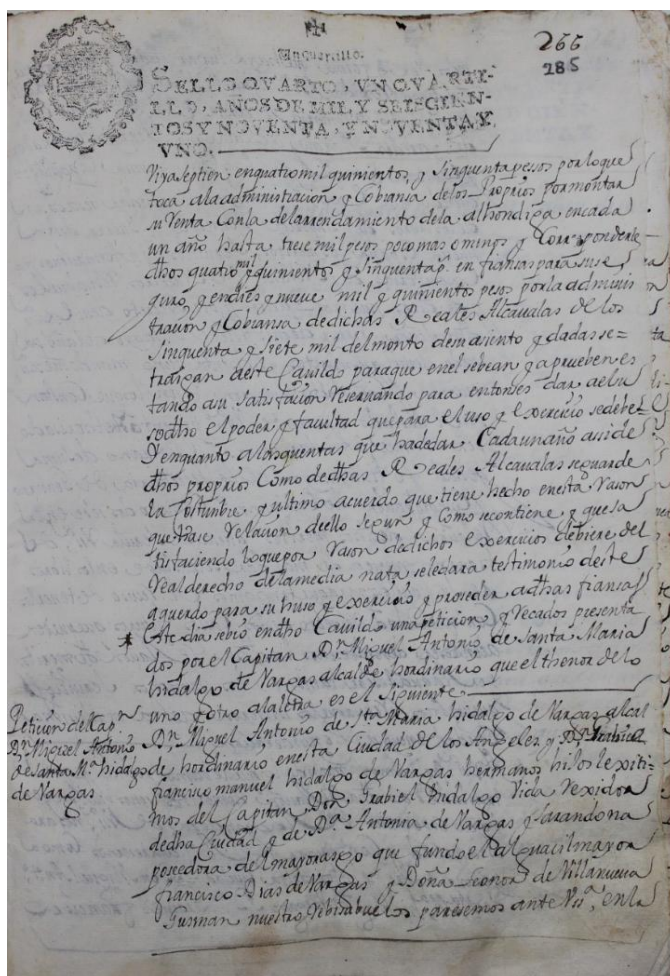 266
285
Vn quartillo.
SELLO QVARTO, VN QVARTI-
LLO, AÑOS DE MIL Y SEISCIEN-
TOS Y NOVENTA, Y NOVENTA Y
VNO.
en quatro mil quinientos, y sinquenta pesos por loque
toca ala administracion y Cobransa delos Proprios por montar
su Venta Conla del arrendamiento dela alhondiga encada
un año hasta trese mil pesos poco mas o menos y Corresponderle
dhos quatro mil y quinientos y sinquenta ps. en fiansas para suse
guro, y endies y nueve mil y quinientos pesos por la adminis
tracion y Cobransa dedichas Reales Alcavalas de los
sinquenta y siete mil del monto desu asiento y dadas se=
traigan aeste Cavildo paraque enel sebean y aprueben es
tando asu satisfacion Reservando para entonses dar ael su
sodho el poder y facultad que para el uso y exercicio sedebe
Y enquanto alas quentas que hadedar Cada un año assi de
dhos proprios Como dedhas Reales Alcavalas se guarde
la Costumbre y ultimo acuerdo que tiene hecho enesta Rason
que trase Relacion deello segun y Como secontiene y que sa
tisfaciendo loque por Rason dedichos exercicios debiere del
Real derecho dela media nata sele dara testimonio deste
aquerdo para su huso y exercicio y proseder adhas fiansas
* Este dia sebio endho Cavildo una peticion y Recados presenta
dos por el Capitan Dn. Miguel Antonio de Santa Maria
hidalgo de Vargas alcalde hordinario que el thenor delo
uno y otro ala letra es el siguiente
Peticion del Capn.
Dn. Miguel Antonio
de Santa Ma. hidalgo
de Vargas
Dn. Miguel Antonio de Sta. Maria hidalgo de Vargas alcal
de hordinario enesta Ciudad de los Angeles y Dn. Grabiel
francisco manuel hidalgo de Vargas hermanos hijos lexiti-
mos del Capitan Don Grabiel hidalgo Vida Rexidor
dedha Ciudad y de Da. Antonia de Vargas y
poseedora del mayorasgo que fundo el alguacil mayor
francisco Dias de Vargas y Doña Leonor de Villanueva
Gusman nuestros Rebisabuelos paresemos ante Vsa. en la